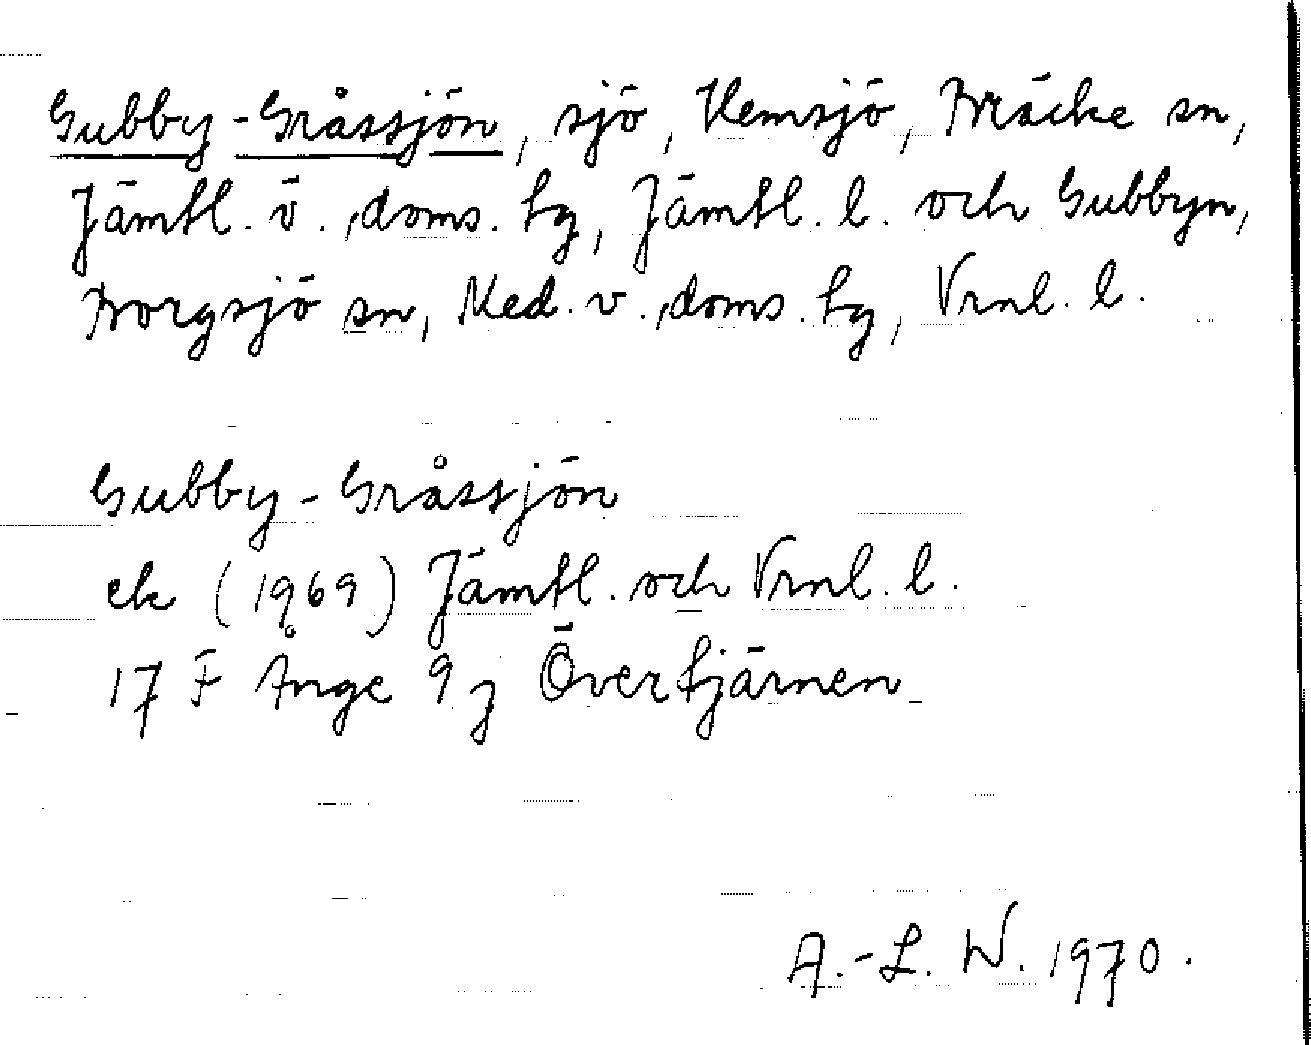 Gubby-Gråssjön, sjö, Hemsjö, Bräcke sn,
Jämtl. ö. doms. tg, Jämtl. l. och Gubbyn,
Borgsjö sn, Med. v. doms. tg, Vrnl. l.
Gubby-Gråssjön
ek (1969) Jämtl. och Vrnl. l.
17 F Ånge 9 j Övertjärnen
A.-L. W. 1970.